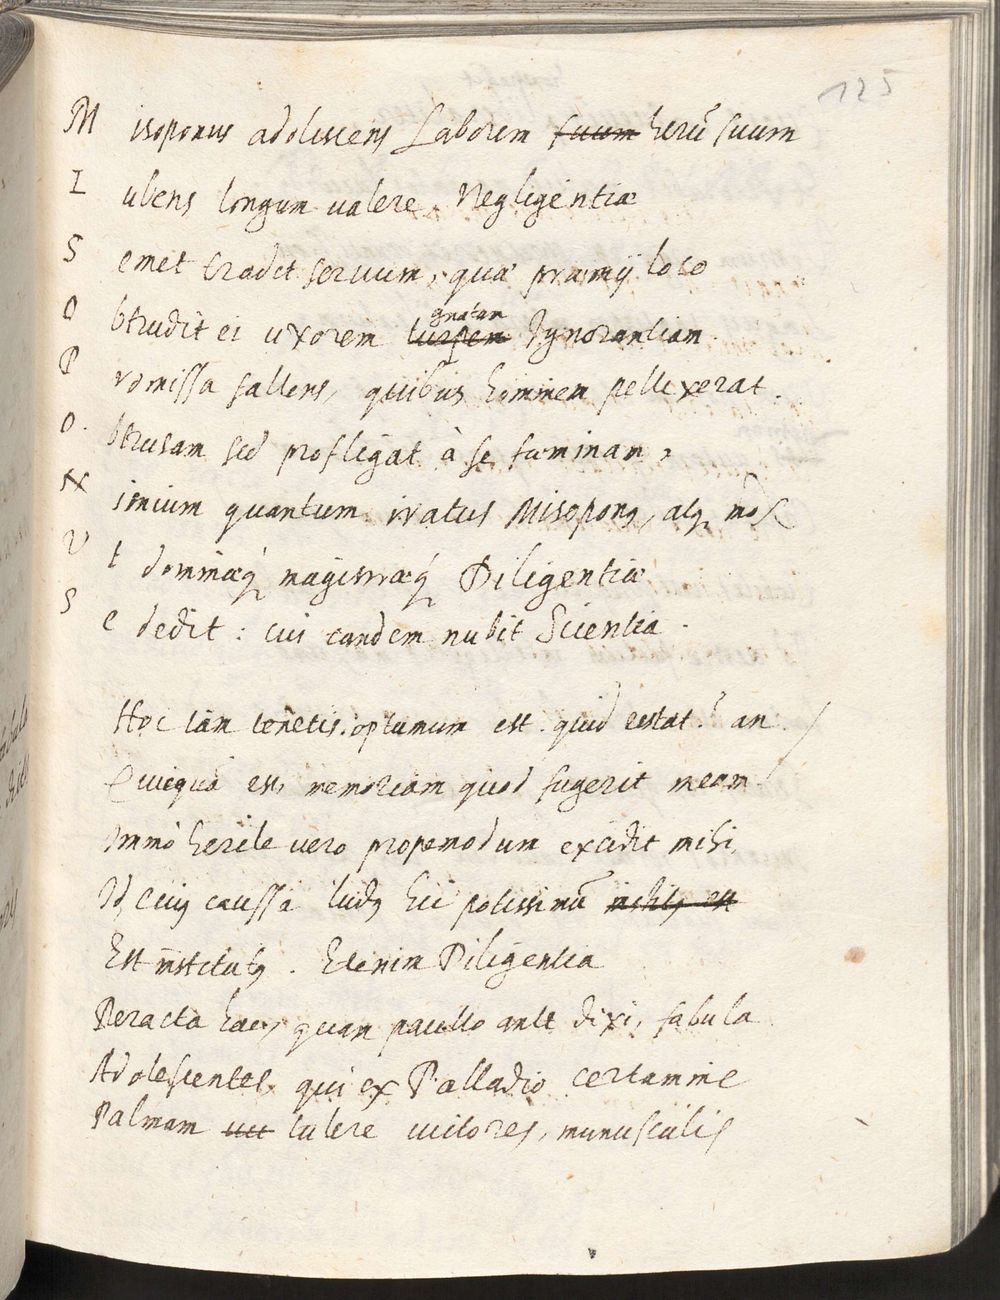 125
M isoponus adolescens Laborem suum herū suum
I ubens longum valere, Negligentiæ
S emet tradit servum, quæ præmij loco
gnatam
O btrudit ei uxorem turpem Ignorantiam.
P romissa fallens, quibus hominem pellexerat.
O. btrusam sed profligat à se fæminam,
N imium quantum iratus Misopong, atq mox
V t dominæq́ magistræq́ Diligentiæ
S e dedit: cui tandem nubit Scientia.
Hoc iam tenetis: optumum est. quid restat? an
Quicquā est, memoriam quod fugerit meam.
Immò herile vero propemodum excidit mihi,
Id, cuiq caussâ ludq hic potissimū
Est institutq. Etenim Diligentia
Peracta hac, quam paullo ante dixi, fabula
Adolescentes, qui ex Palladio certamine
Palmam tulere victores, munusculis